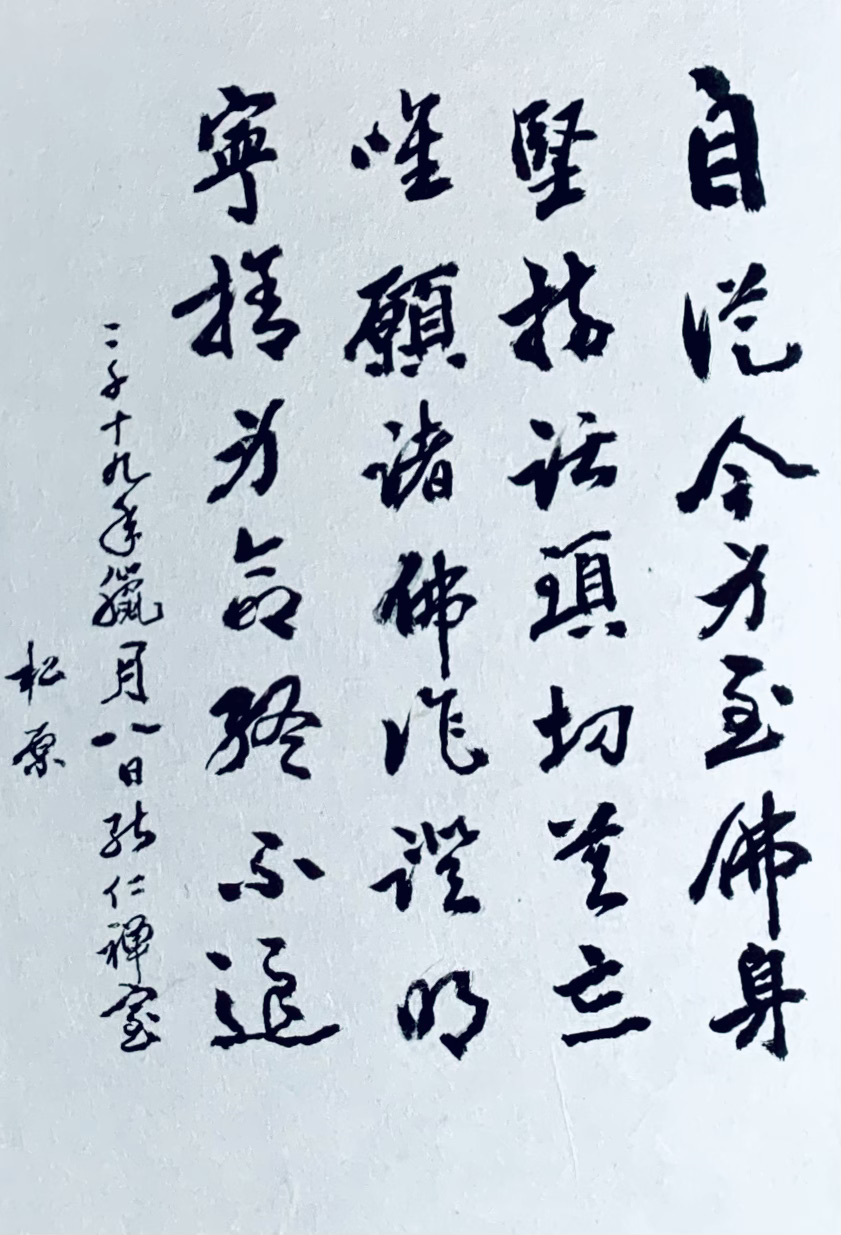 自從今身至佛身
堅持話頭切莫忘
唯願諸佛作證明
寧捨身命終不退
二千十九年臘月八日能仁禪室
松原